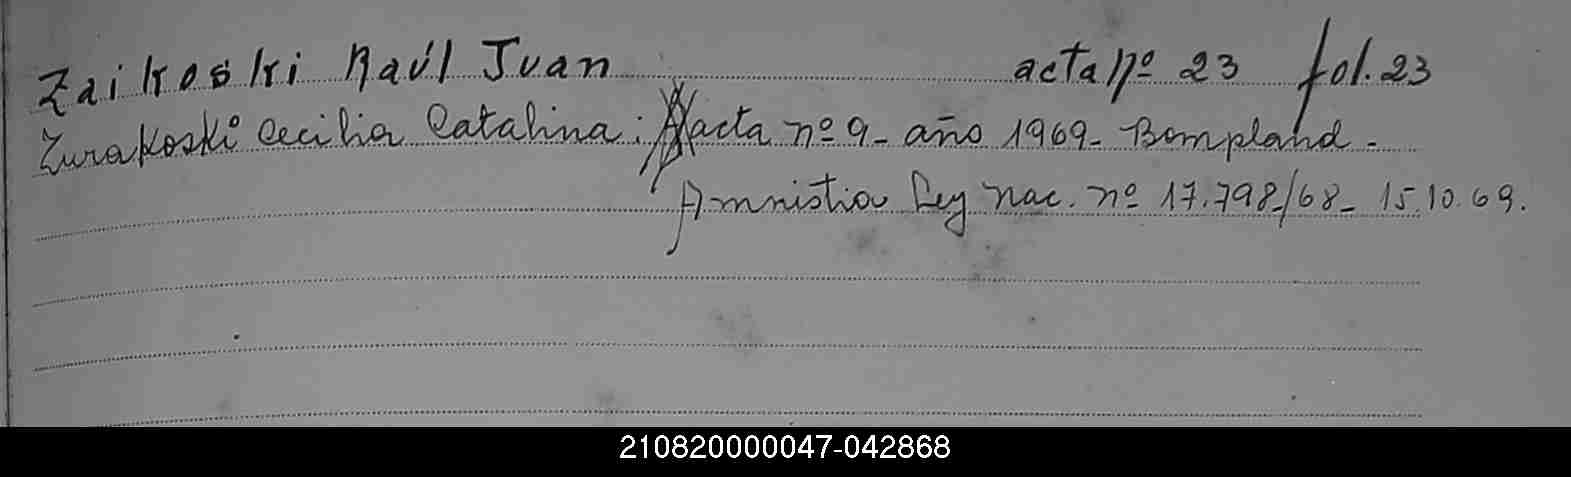 Zaikoski Raúl Juan acta nº 23 fol. 23
Zurakoski Cecilia Catalina: acta nº 9- año 1969- Bompland-
Amnistia Ley nac. nº 17.798-/68- 15.10.69.
210820000047-042868